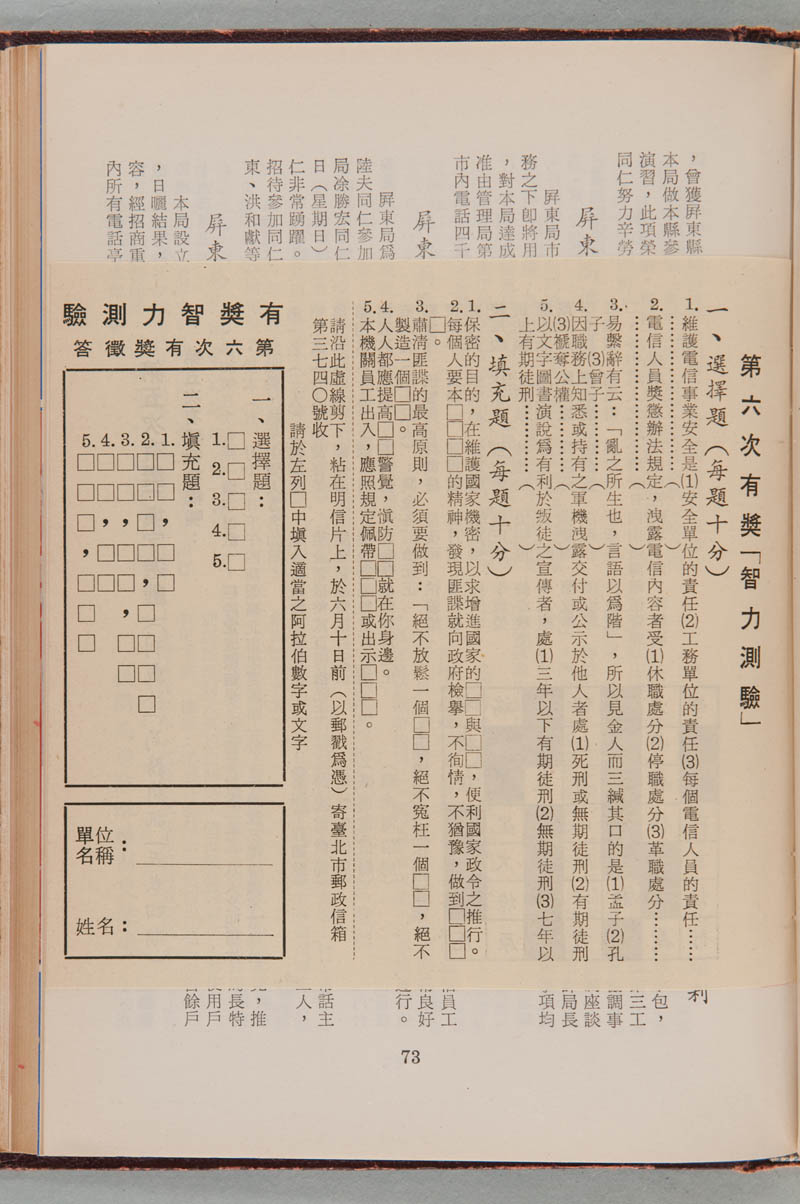 第六次有獎「智力測驗」
一、選擇題（每題十分）
1.維護電信事業安全是⑴安全單位的責任⑵工務單位的責任⑶每個電信人員的責任……
………………（　　）
2.電信人員獎懲辦法規定，洩露電信內容者受⑴休職處分⑵停職處分⑶革職處分………
………………（　　）
3.易繫辭有云：「亂之所生也，言語以爲階」，所以見金人而三緘其口的是⑴孟子⑵孔
子⑶曾子………（　　）
4.因職務上知悉或持有之軍機洩露交付或公示於他人者處⑴死刑或無期徒刑⑵有期徒刑
⑶褫奪公權………（　　）
5.以文字圖書演說爲有利於叛徒之宣傳者，處⑴三年以下有期徒刑⑵無期徒刑⑶七年以
上有期徒刑………（　　）
二、填充題（每題十分）
1.保密的目的，在維護國家機密，以求增進國家的□□與□□，便利國家政令之推行。
2.每個人要本□□□□的精神，發現匪諜就向政府檢舉，不徇情，不猶豫，做到□□□
□。
3.肅清匪諜的最高原則，必須要做到：「絕不放鬆一個□□，絕不寃枉一個□□，絕不
製造一個□□。
4.人人都應提高□□警覺，滇防□□就在你身邊。
5.本機關員工出入，應照規定佩帶□□□或出示□□□。
請沿此虛線剪下，粘在明信片上，於六月十日前（以郵戳爲憑）寄臺北市郵政信箱
第三七四〇號收
請於左列□中塡入適當之阿拉伯數字或文字
有獎智力測驗
第六次有獎徵答
一、選擇題：
1.□
2.□
3.□
4.□
5.□
二、塡充題：
1.□□，□□
2.□□□□，□□□□
3.□□，□□，□□
4.□□，□□
5.□□□，□□□
單位名稱：
姓名：
，曾獲屏東縣
本局做本縣參
演習，此項榮
同仁努力辛勞
屏東
屏東局市
務之下卽將用
，對本局達成
准由管理局第
市內電話四千
屏東
屏東局爲
陸夫同仁參加
局凃勝宏同仁
日（星期日）
仁非常踴躍。
招待參加同仁
東、洪和獻等
屏東
本局設立
，日曬結果，
容，經招商重
內所有電話亭
利
包，
三工
調事
座談
局長
項均
員工
良好
行。
話主
人，
，推
長特
用戶
餘戶
73